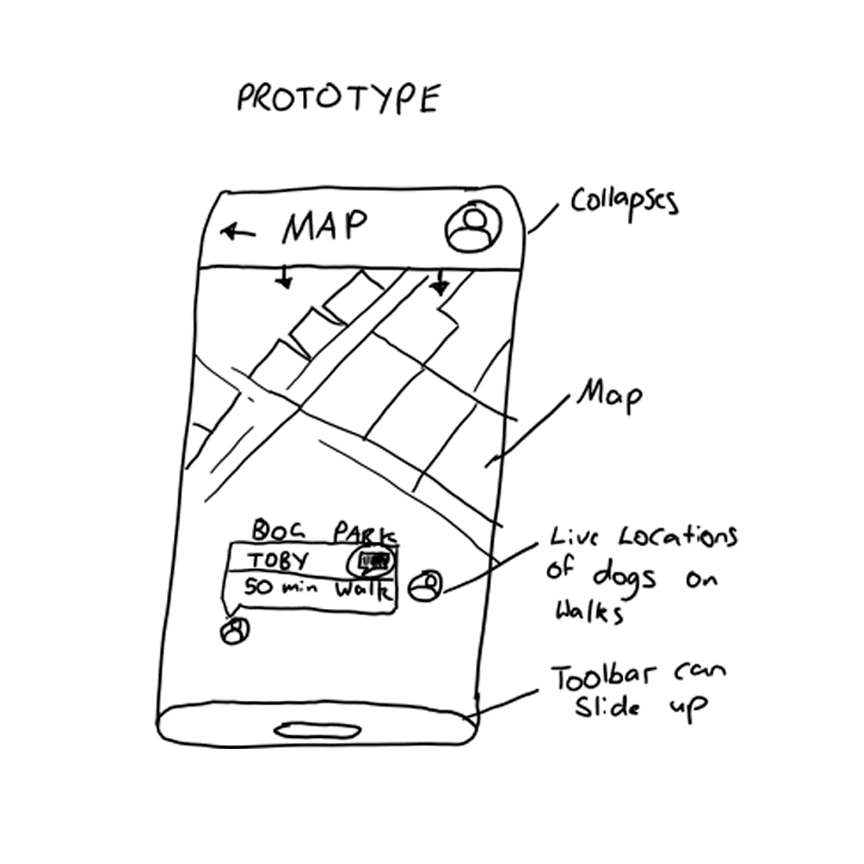 PROTOTYPE
MAP
Collapses
Map
DOG PARK
TOBY
50 min Walk
Live Locations
of dogs on
Walks
Toolbar can
Slide up